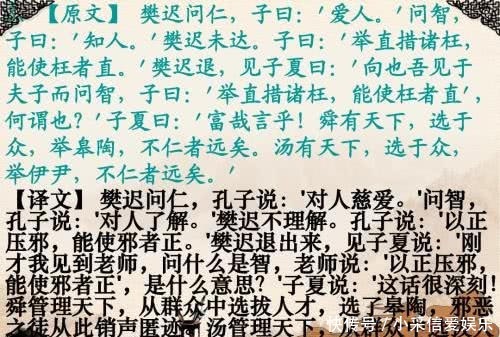 【原文】樊迟问仁，子曰：'爱人。'问智，
子曰：'知人。'樊迟未达。子曰：'举直措诸枉，
能使枉者直。'樊迟退，见子夏曰：'向也吾见于
夫子而问智，子曰：'举直措诸枉，能使枉者直'，
何谓也？'子夏曰：'富哉言乎！舜有天下，选于
众，举皋陶，不仁者远矣。汤有天下，选于众，
举伊尹，不仁者远矣。'
【译文】樊迟问仁，孔子说：'对人慈爱。'问智，
孔子说：'对人了解。'樊迟不理解。孔子说：'以正
压邪，能使邪者正。'樊迟退出来，见子夏说：'刚
才我见到老师，问什么是智，老师说：'以正压邪，
能使邪者正'，是什么意思？'子夏说：'这话很深刻！
舜管理天下，从群众中选拔人才，选了皋陶，邪恶
之徒从此销声匿迹。汤管理天下，从群众
快传号/小采信爱娱乐